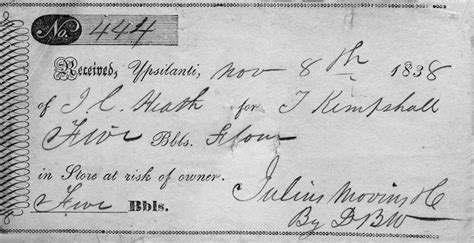 No. 444
Received, Ypsilanti, Nov 8th 1838
of J. C. Heath for T Kempshall
Five Bbls. Flour
in Store at risk of owner.
Five Bbls. Julius Movius & Co
By D B W